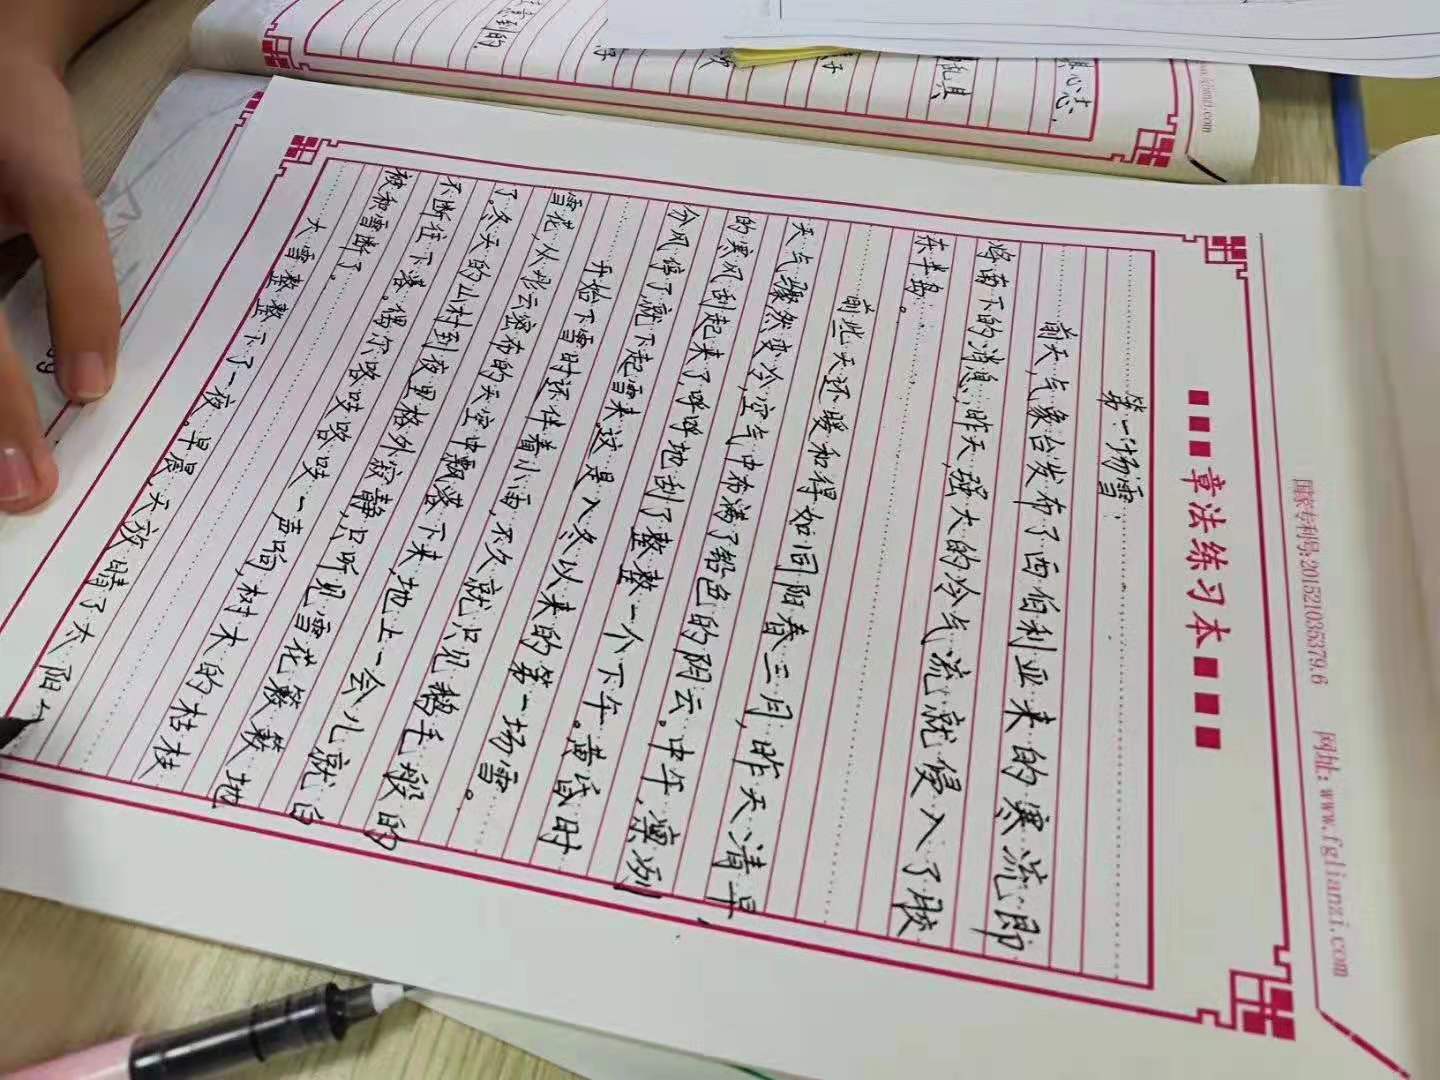 国家专利号:201521035379.6 网址:www.fglianzi.com
章法练习本
第一场雪
前天,气象台发布了西伯利亚来的寒流即
将南下的消息,昨天,强大的冷气流就侵入了胶
东半岛。
前些天还暖和得如同阳春三月,昨天清早,
天气骤然变冷,空气中布满了铅色的阴云。中午,凛冽
的寒风刮起来了,呼呼地刮了整整一个下午。黄昏时
分,风停了,就下起雪来,这是入冬以来的第一场雪。
开始下雪时还伴着小雨,不久就只见鹅毛般的
雪花,从彤云密布的天空中飘落下来,地上一会儿就白
了。冬天的山村到夜里格外寂静,只听见雪花簌簌地
不断往下落。偶尔咯吱咯吱一声响,树木的枯枝
被和雪断了。
大雪整整下了一夜。早晨,天放晴了,太阳
心志,